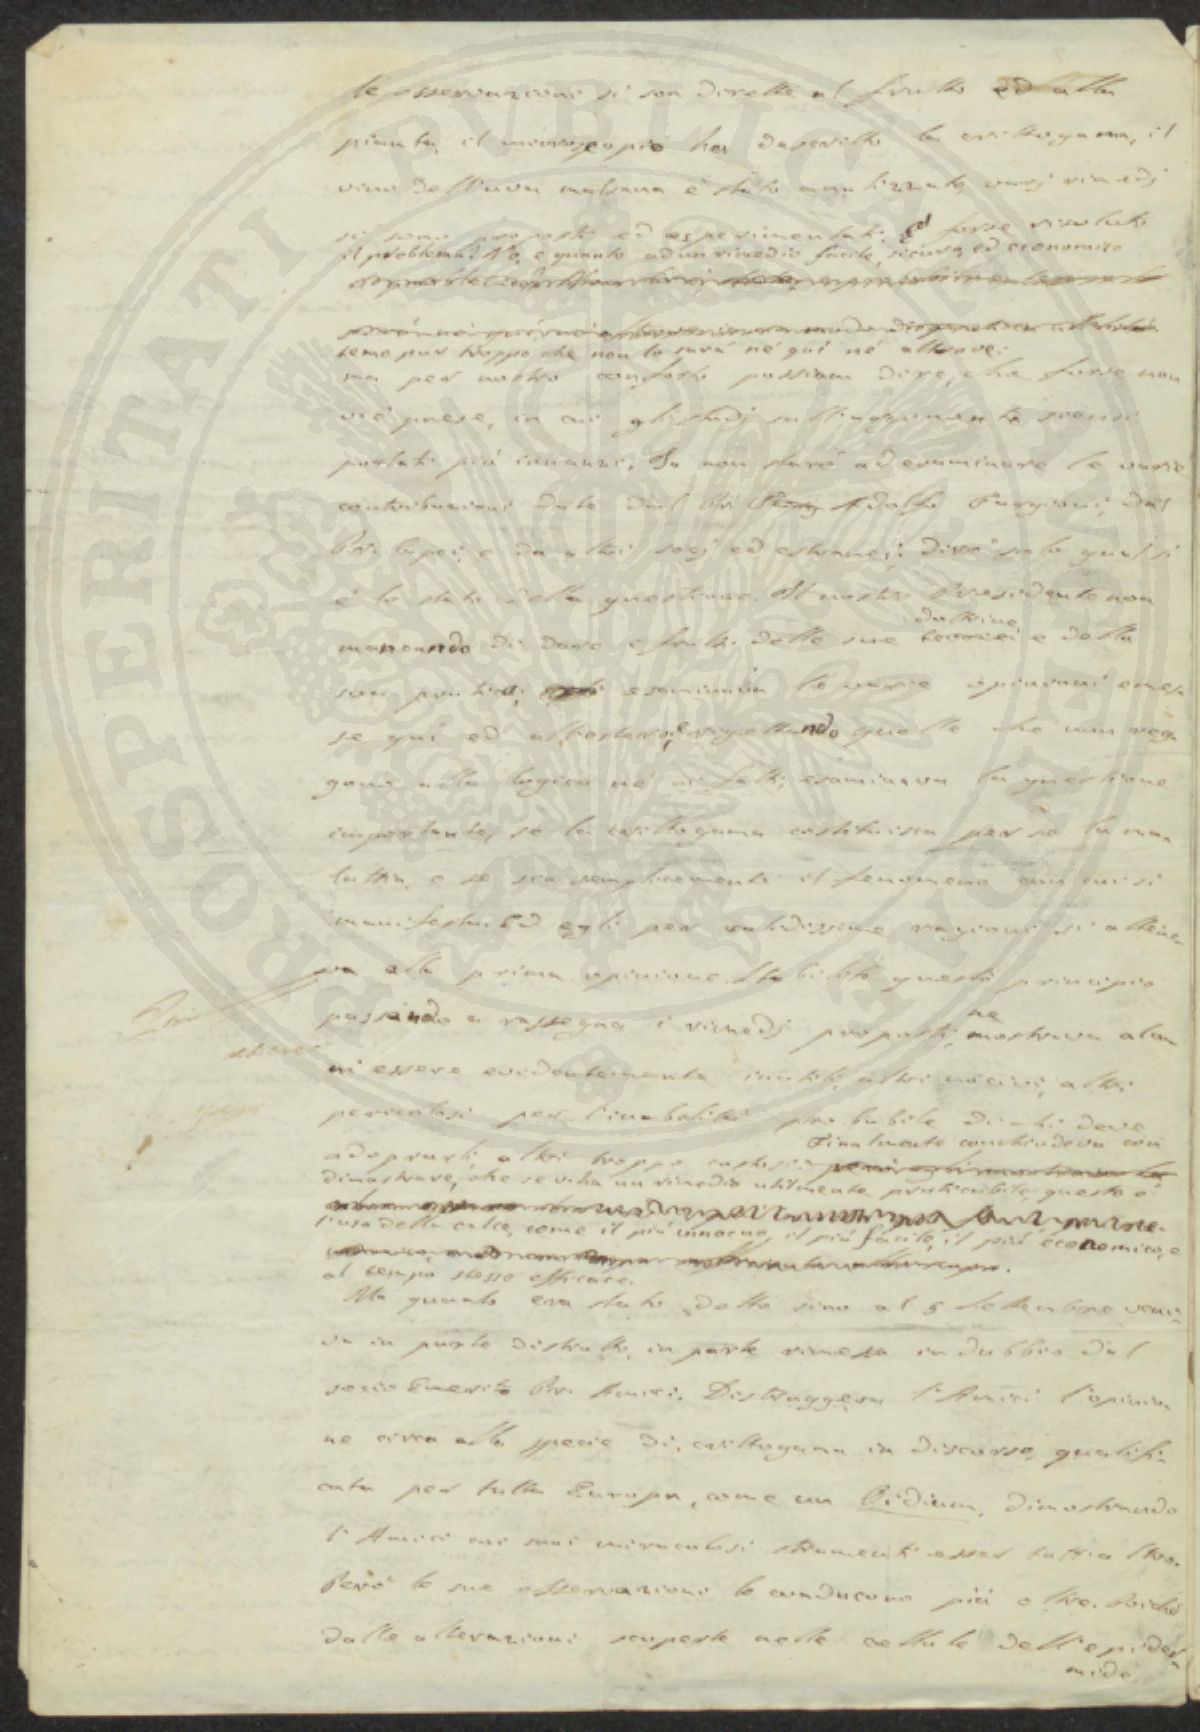 le osservazioni si son dirette al frutto ed alla
pianta, il microscopio ha descritto la crittogama, il
vino dell'uva malsana è stato analizzato, varj rimedj
si sono proposti ed esperimentati, ed forse risoluto
il problema? No, e quanto ad un rimedio facile, sicuro, ed economico
temo pur troppo che non lo sarà nè qui nè altrove:
ma per nostro conforto possiam dire, che forse non
vi è paese, in cui gli studj sull'argomento sieno
portati più innanzi. Io non starò ad esaminare le varie
contribuzioni date dal Pri Adolfo Targioni, dal
Pri e da altri socj ed estranei: dirò solo qual si
è lo stato della questione. Il nostro Presidente non
mancando di dare i frutti delle sue dottrine e della
sua pratica, esaminava le varie opinioni emes
se quì ed all'estero, e rigettando quelle che non reg
gono alla logica nè ai fatti, esaminava la questione
importante, se la crittogama costituisca per se la ma
lattia, o se sia semplicemente il fenomeno con cui si
manifesta. Ed egli per validissime ragioni si attene
va alla prima opinione. Stabilito questo principio
passando a rassegna i rimedj proposti, ne mostrava alcu
ni essere evidentemente inutili, altri nocivi, altri
pericolosi per l'inabilità probabile di chi deve
adoprarli, altri troppo costosi. Finalmente conchiudeva con
dimostrare, che se vi ha un rimedio utilmente praticabile, questo è
l'uso della calce, come il più innocuo, il più facile, il più economico, e
al tempo stesso efficace.
Ma quanto era stato detto sino al 5 Settembre veni
va in parte distrutto, in parte rimesso in dubbio dal
socio Emerito Pri Amici. Distruggeva l'Amici l'opinio
ne circa alla specie di crittogama in discorso, qualifi
cata per tutta Europa, come un Oidium, dimostrando
l'Amici coi suoi miracolosi strumenti esser tutt'altro.
Però le sue osservazioni lo conducono più oltre. Poichè
dalle alterazioni scoperte nelle cellule dell'epider
mide